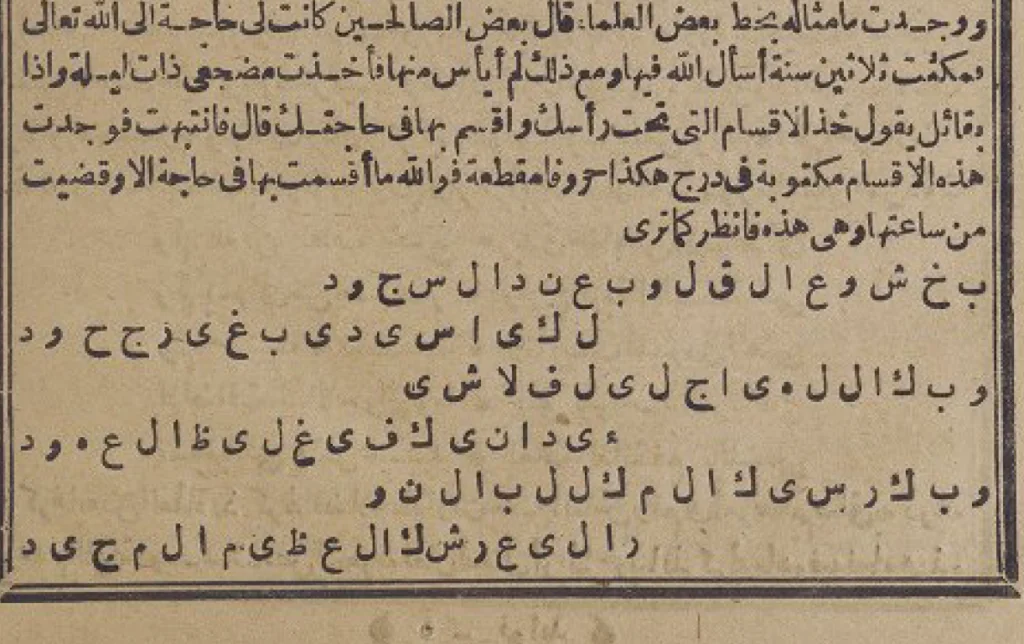 ووجدت ما مثاله بخط بعض العلماء قال بعض الصالحين كانت لى حاجة الى الله تعالى
فمكثت ثلاثين سنة أسأل الله فيها ومع ذلك لم أيأس منها فأخذت مضجعى ذات ليلة واذا
بقائل يقول خذ الاقسام التى تحت رأسك واقسم بها فى حاجتك قال فانتبهت فوجدت
هذه الاقسام مكتوبة فى درج هكذا حروفا مقطعة فوالله ما أقسمت بها فى حاجة الا وقضيت
من ساعتها وهى هذه فانظر كما ترى
ب خ ش و ع ا ل ق ل و ب ع ن د ا ل س ج و د
ل ك ى ا س ى د ى ب غ ى ر ج ح و د
و ب ك ا ل ل ه ى ا ج ل ى ل ف لا ش ى
ء ى د ا ن ى ك ف ى غ ل ى ظ ا ل ع ه و د
و ب ك ر س ى ك ا ل م ك ل ل ب ا ل ن و
ر ا ل ى ع ر ش ك ا ل ع ظ ى م ا ل م ج ى د